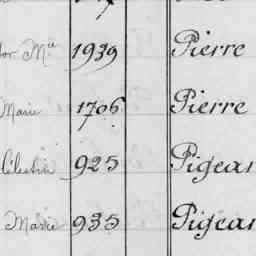 Mie 1939 Pierre
Marie 1706 Pierre
Célestin 925 Pigear
Marie 935 Pigear